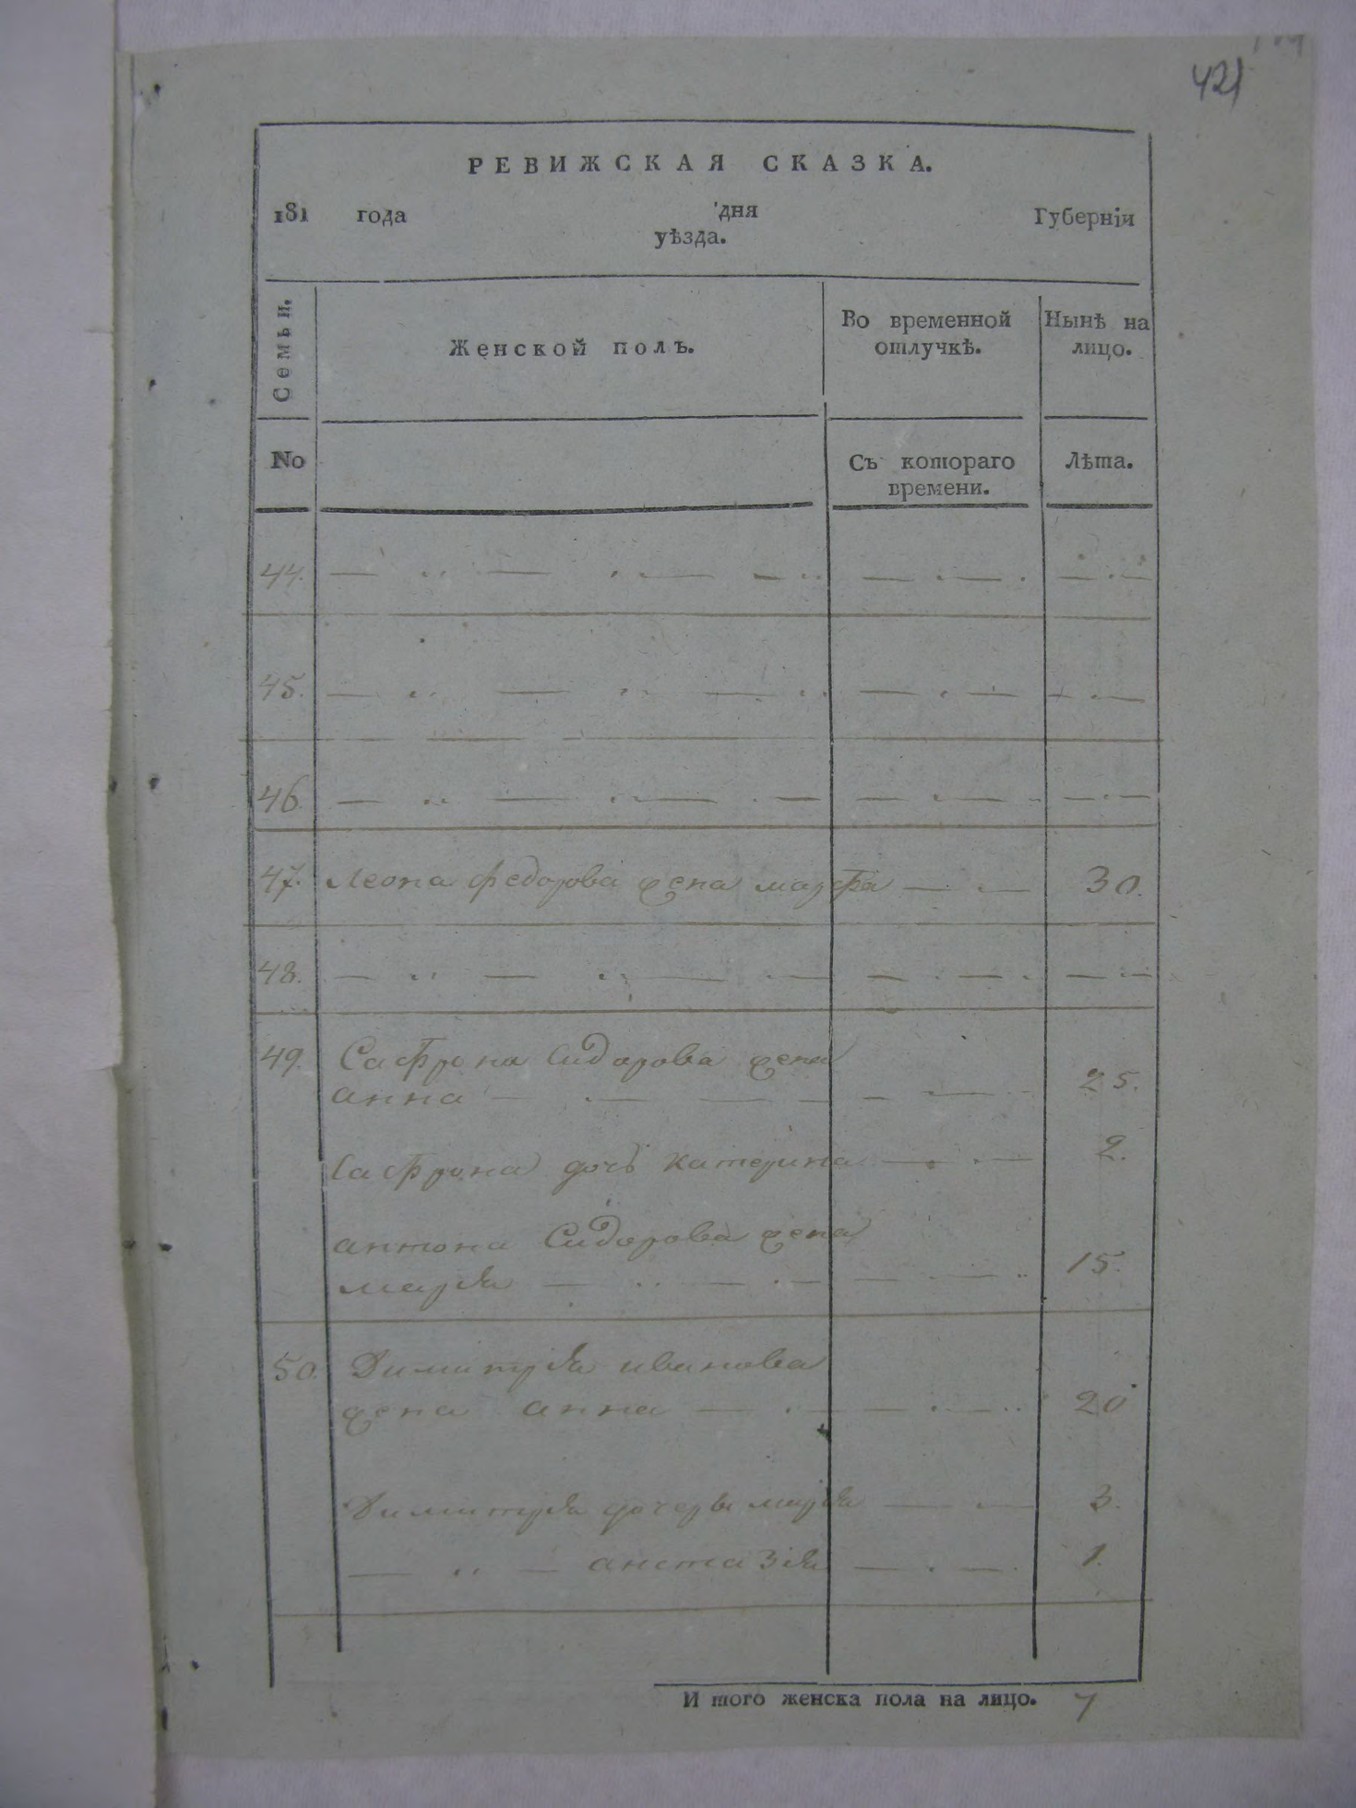 421
РЕВИЖСКАЯ СКАЗКА.
181 года дня Губерніи
уѣзда.
Семьи.
Женской полъ.
Во временной отлучкѣ.
Нынѣ на лицо.
No
Съ котораго времени.
Лѣта.
44. — " — " — — " — · — · — · —
45. — " — " — " — · — — · —
46. — " — " — · — — · — — · —
47. Леона Федорова жена марфа — · — 30.
48. — " — " — · — — · — · — " —
49. Сафрона Сидорова жена
анна — · — — — — 25.
Сафрона дочь катерина — · — 2.
антона Сидорова жена
марія — " — · — — · — " 15.
50. Димитрія иванова
жена анна — · — — · — " 20
Димитрія дочери марія — · — 3.
— " — анстазія — · — 1.
И того женска пола на лицо. 7